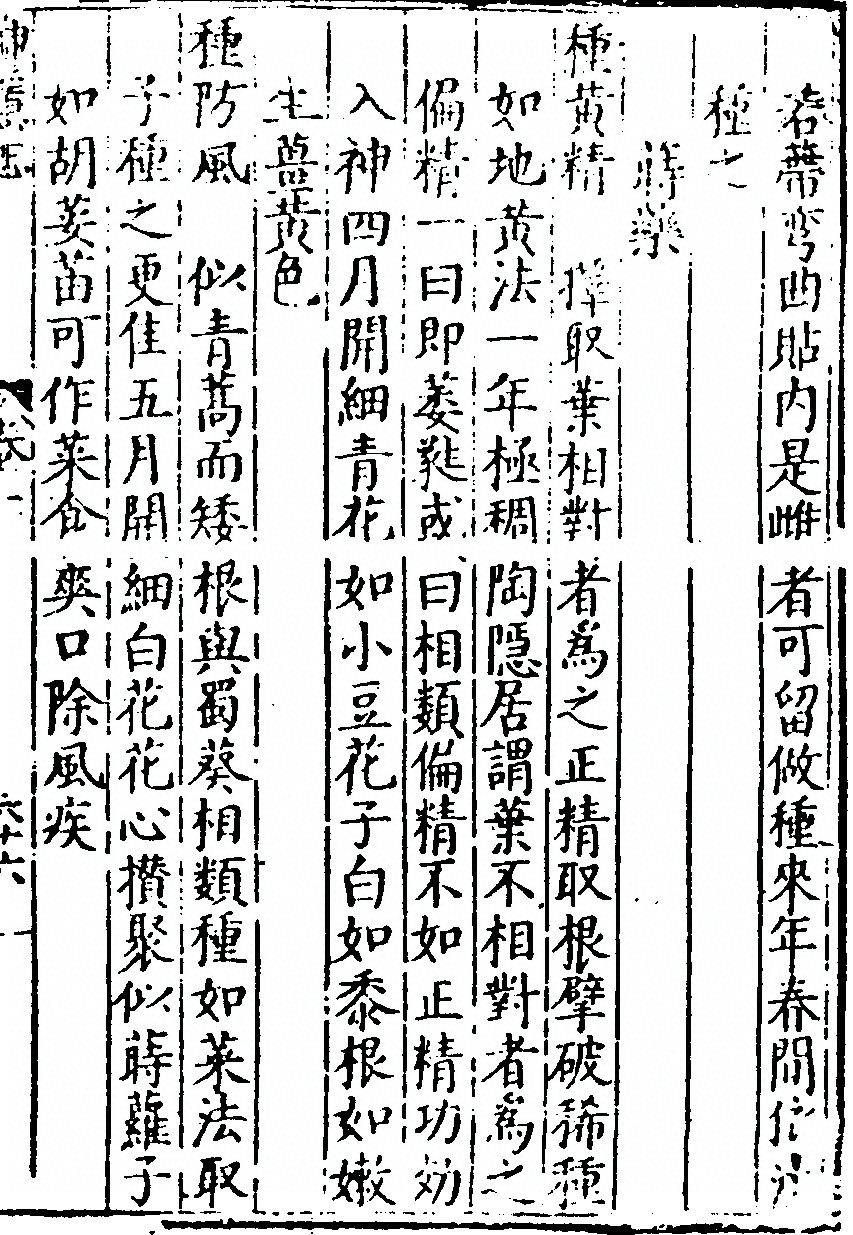 若蔕弯曲貼内是雌者可留做種來年春間依法
種之
蒔藥
種黄精　擇取葉相對者爲之正精取根擘破稀種
如地黄法一年極稠陶隱居謂葉不相對者爲之
偏精一曰即萎蕤或曰相類偏精不如正精功効
入神四月開細青花如小豆花子白如黍根如嫩
生薑黄色
種防風　似青蒿而矮根與蜀葵相類種如菜法取
子種之更佳五月開細白花花心攅聚似蒔蘿子
如胡荽苗可作菜食爽口除風疾
神隱志
卷
六十六